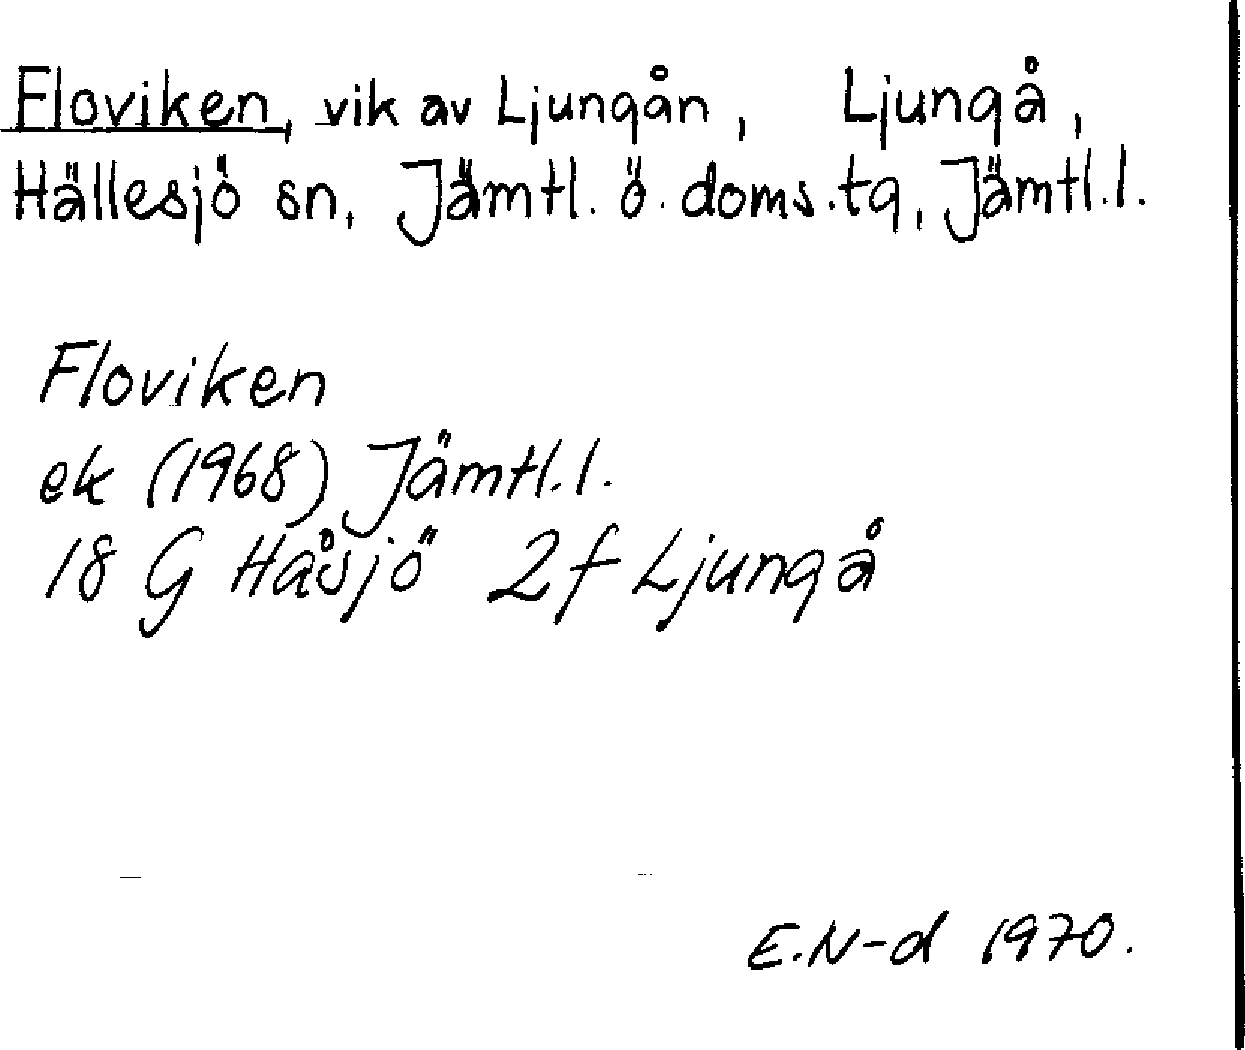 Floviken, vik av Ljungån, Ljungå,
Hällesjö sn, Jämtl. ö. doms.tg, Jämtl.l.
Floviken
ek (1968) Jämtl.l.
18 G Håsjö 2f Ljungå
E.N-d 1970.